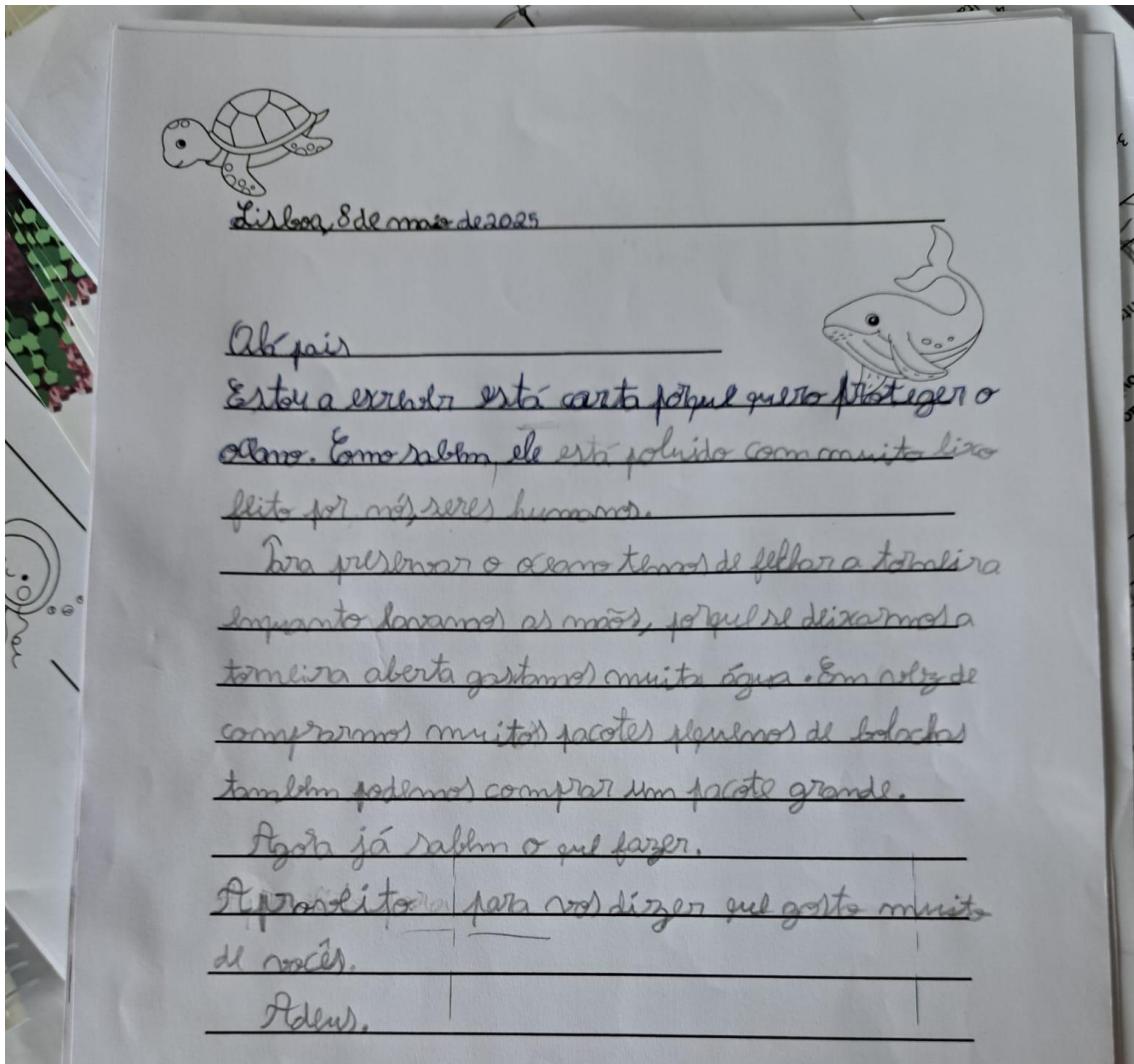 Lisboa, 8 de maio de 2025
Olá pais
Estou a escrever está carta porque quero proteger o
oceano. Como sabem, ele está poluido com muito lixo
feito por nós, seres humanos.
Para preservar o oceano temos de fechar a torneira
enquanto lavamos as mãos, porque se deixarmos a
torneira aberta gastamos muita água. Em vez de
comprarmos muitos pacotes pequenos de bolachas
também podemos comprar um pacote grande.
Agora já sabem o que fazer.
Aproveito para vos dizer que gosto muito
de vocês.
Adeus.